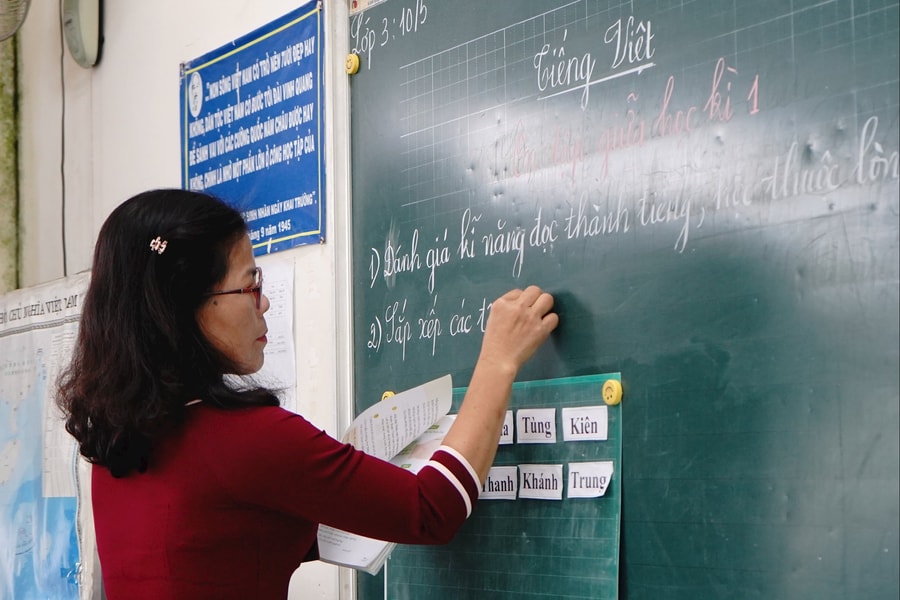 Lớp 3: 10/5
Tiếng Việt
Ôn tập giữa học kì 1
1) Đánh giá kĩ năng đọc thành tiếng, học thuộc lòn
2) Sắp xếp các t
"NON SÔNG VIỆT NAM CÓ TRỞ NÊN TƯƠI ĐẸP HAY
KHÔNG, DÂN TỘC VIỆT NAM CÓ BƯỚC TỚI ĐÀI VINH QUANG
ĐỂ SÁNH VAI VỚI CÁC CƯỜNG QUỐC NĂM CHÂU ĐƯỢC HAY
KHÔNG, CHÍNH LÀ NHỜ MỘT PHẦN LỚN Ở CÔNG HỌC TẬP CỦA
SINH NHÂN NGÀY KHAI TRƯỜNG
9 năm 1945
CHỦ NGHĨA VIỆT NAM
Tùng Kiên
Thanh Khánh Trung